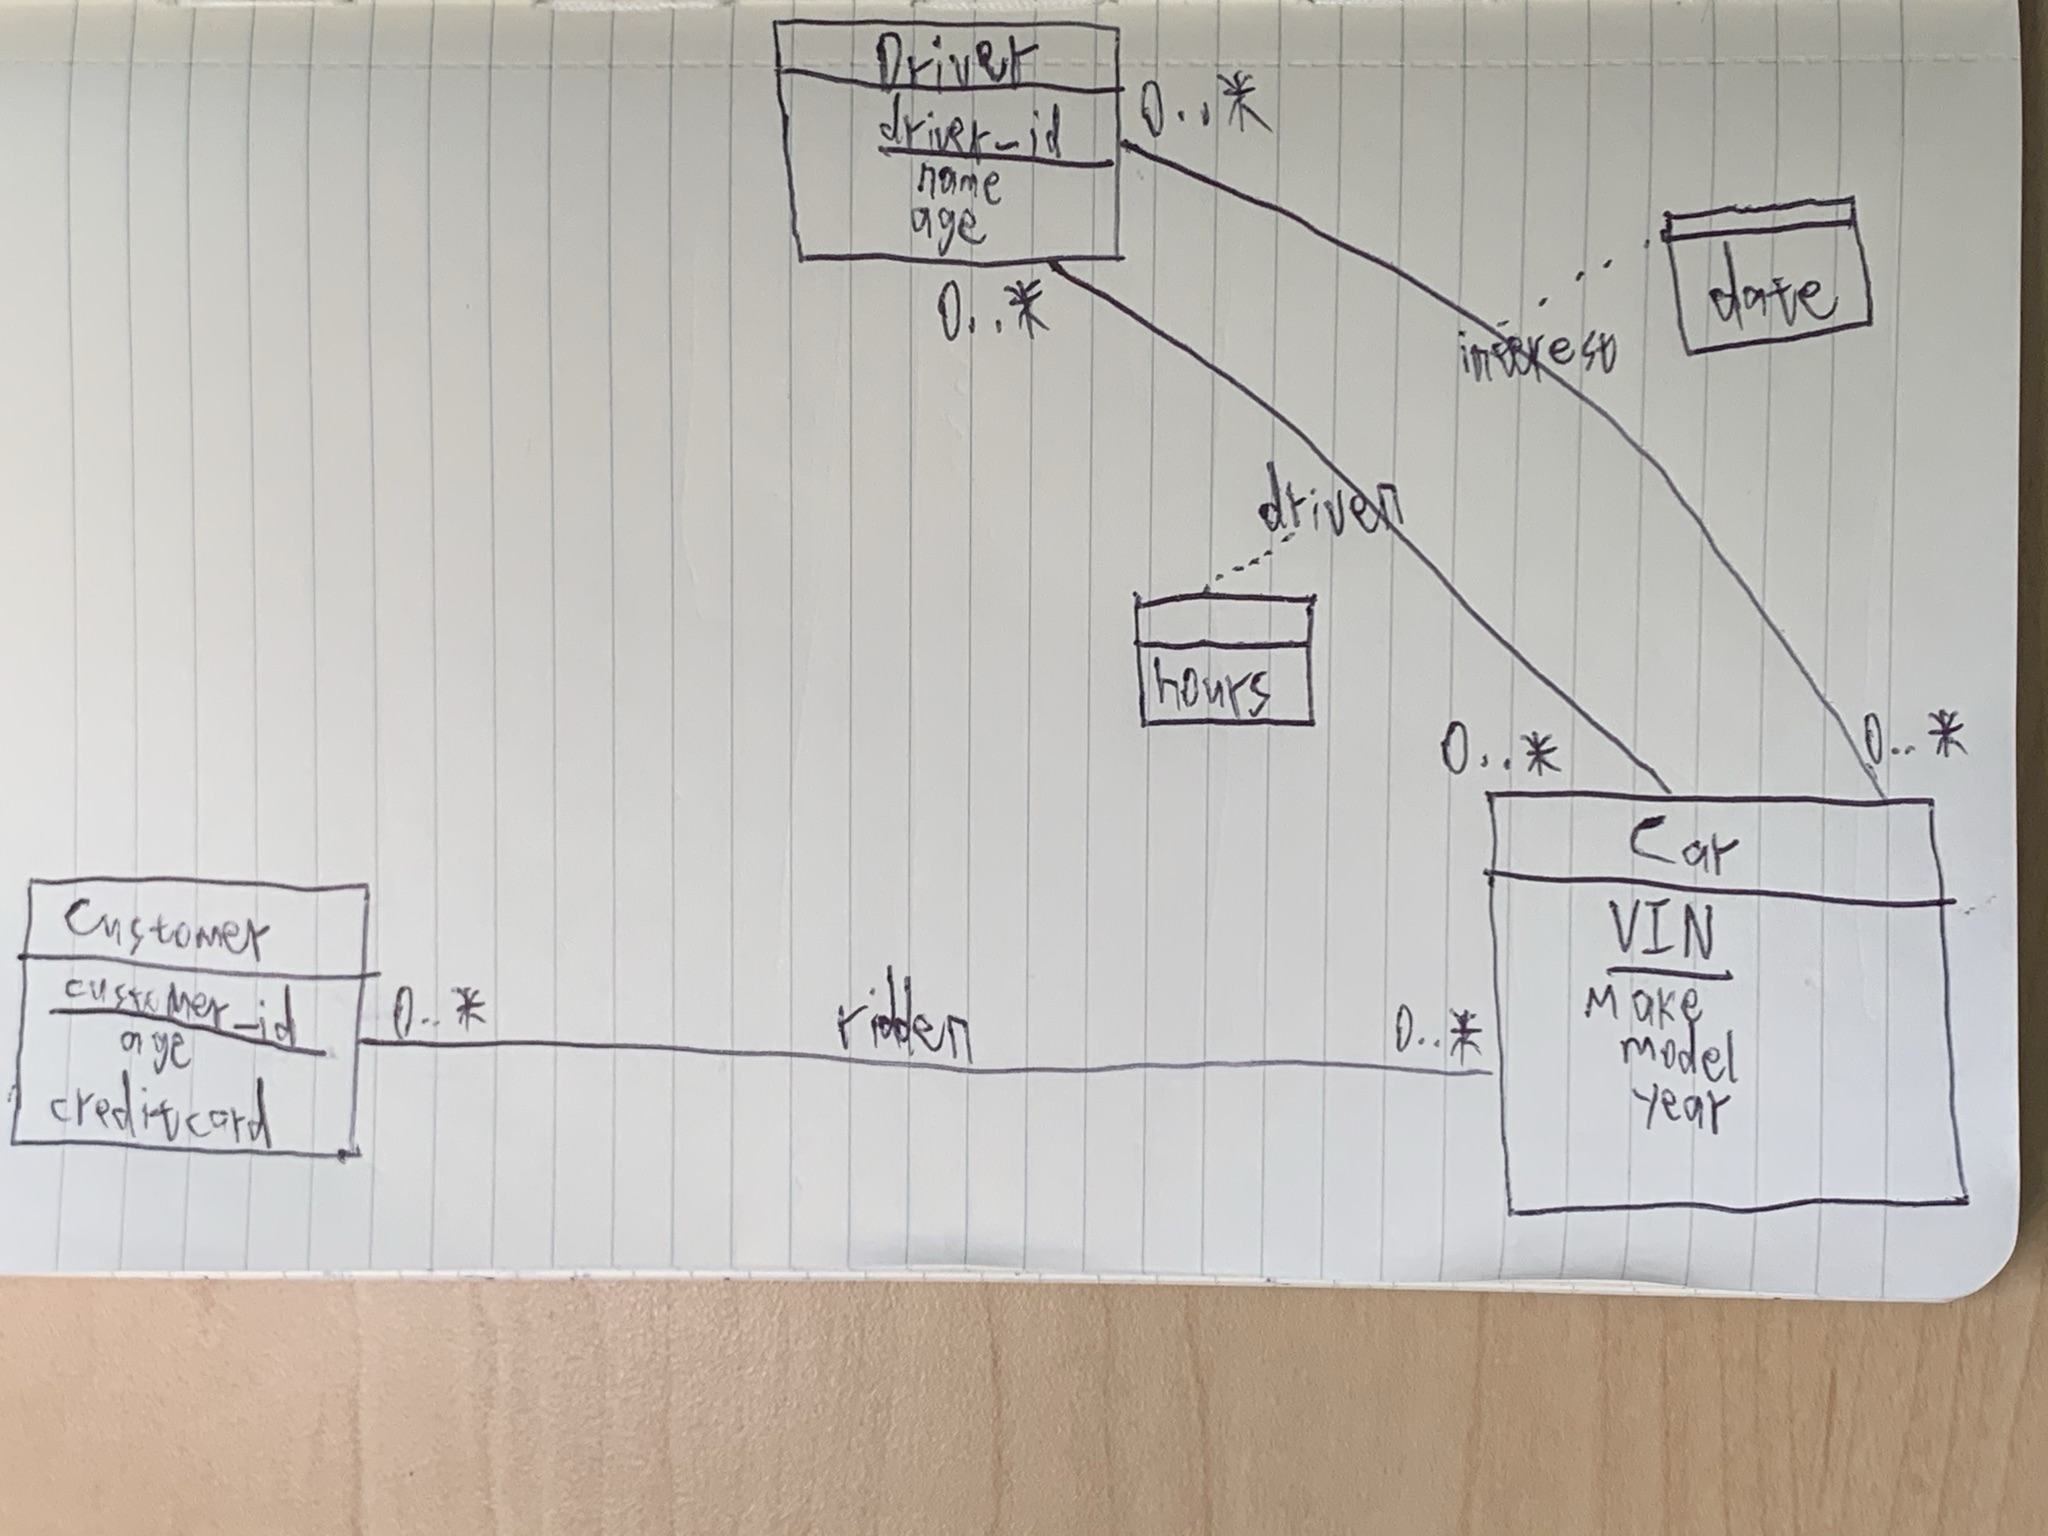 Driver
driver_id
name
age
0..*
0..*
date
interest
driven
hours
0..*
0..*
Car
VIN
Make
model
year
Customer
customer_id
age
creditcard
0..*
ridden
0..*